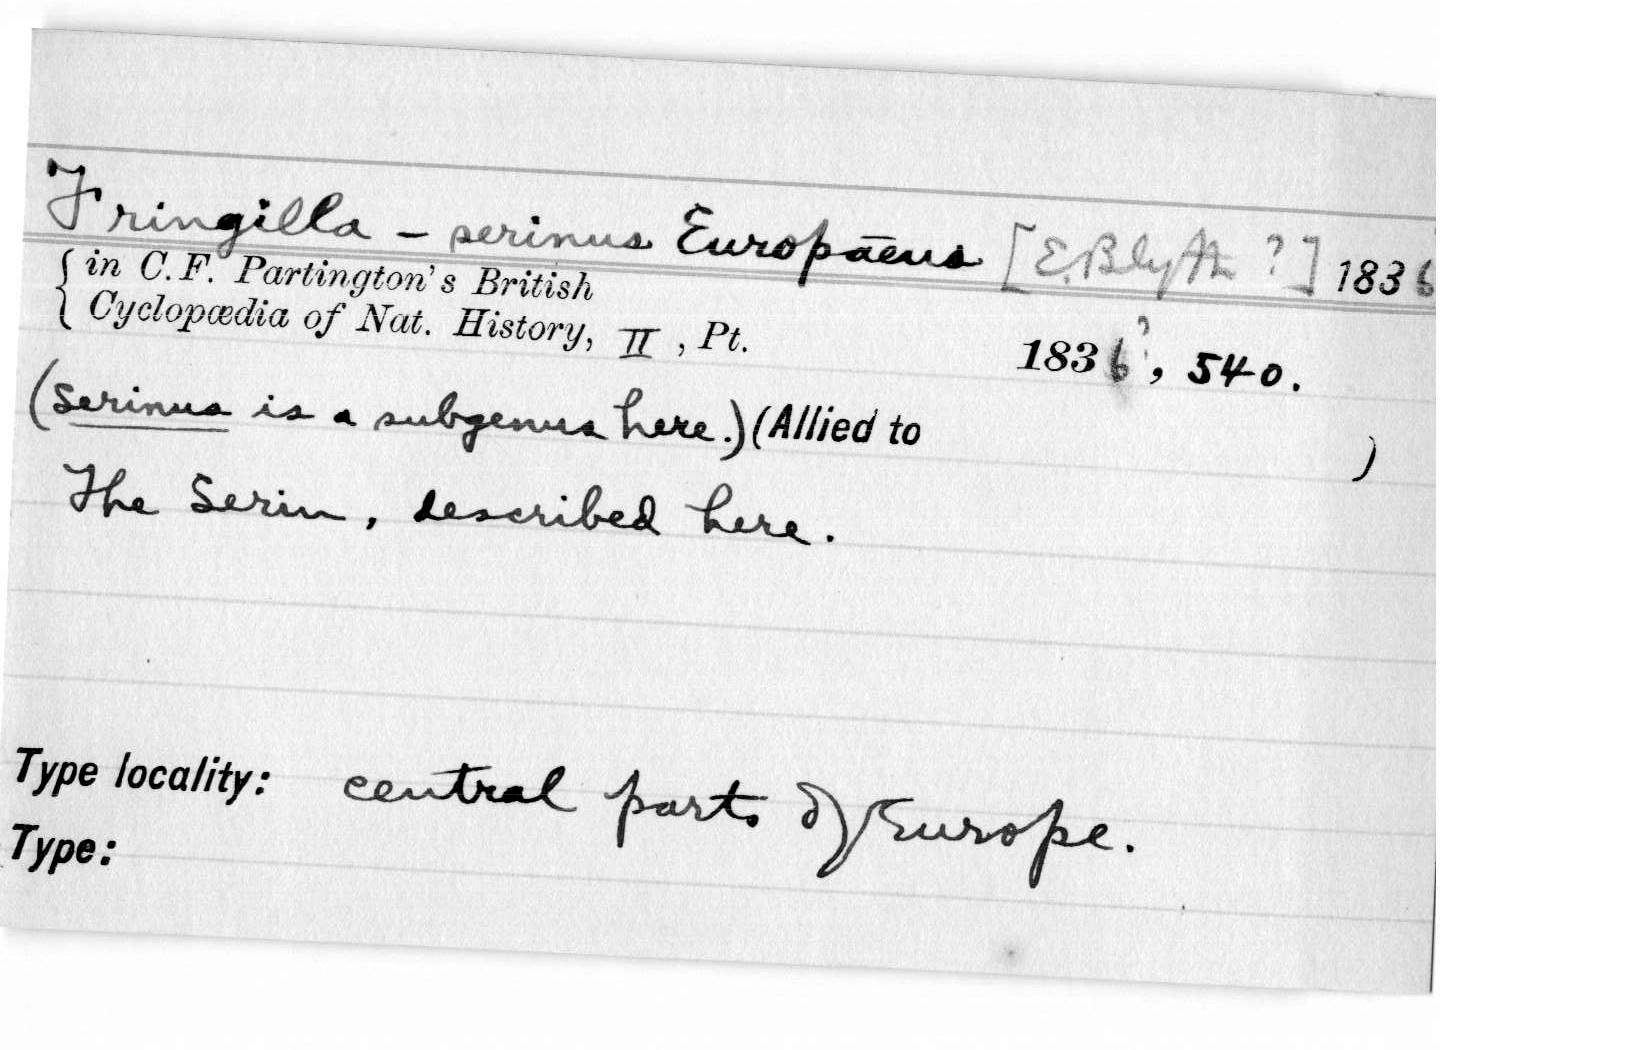 Fringilla - serinus Europāeus [E. Blyth ?] 1836
in C. F. Partington's British
Cyclopædia of Nat. History, II , Pt. 1836?, 540.
(Serinus is a subgenus here.) (Allied to )
The Serin, described here.
Type locality: central parts of Europe.
Type: